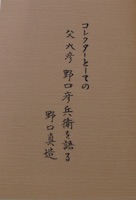 コレクターとしての
父 大彦 野口彦兵衛を語る
野口真造